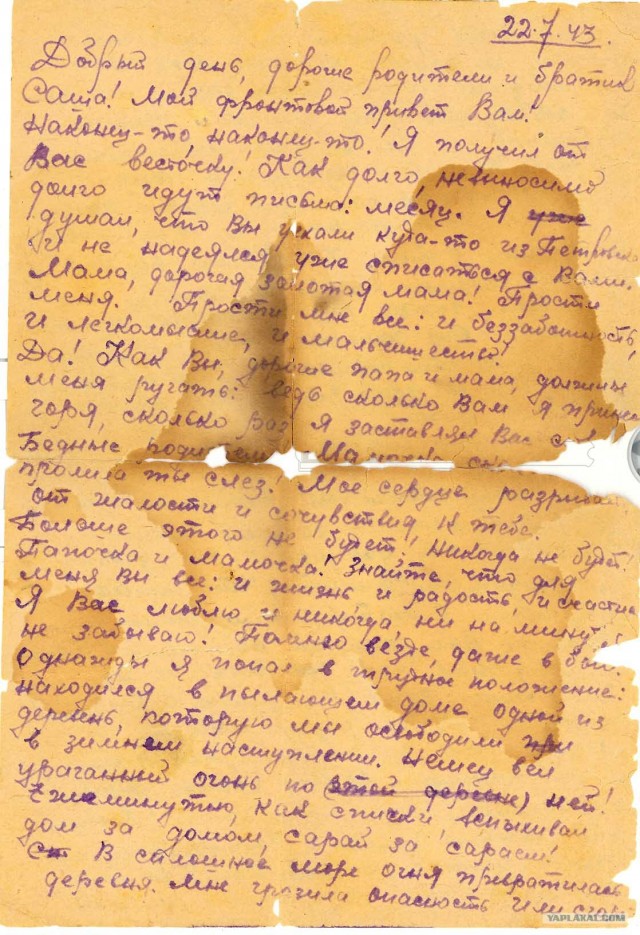 22.7.43.
Добрый день, дорогие родители и братик
Саша! Мой фронтовой привет Вам!
Наконец-то, наконец-то! Я получил от
Вас весточку! Как долго, невыносимо
долго идут письма: месяц. Я уже
думал, что Вы уехали куда-то из
И не надеялся уже списаться с Вами.
Мама, дорогая золотая мама! Прости
меня. Прости мне все: и беззаботность,
и легкомыслие, и мальчишество!
Да! Как Вы, дорогие папа и мама, должны
меня ругать: ведь сколько Вам я принес
горя, сколько раз я заставлял Вас
Бедные Мамочка
пролила ты слез! Мое сердце
от жалости и сочувствия к тебе.
Больше этого не будет! Никогда не будет!
Папочка и мамочка! Знайте, что для
меня Вы все: и жизнь и радость, и счастье
Я Вас люблю и никогда, ни на минуту
не забываю! Помню везде, даже в бою.
Однажды я попал в трудное положение:
находился в пылающем доме одной из
деревень, которую мы освободили при
в зимнем наступлении. Немец вел
ураганный огонь по (этой деревне) ней!
Ежеминутно, как спички вспыхивал
дом за домом, сарай за сараем!
Ст В сплошное море огня превратилась
деревня. Мне грозила опасность или
YAPLAKAL.COM